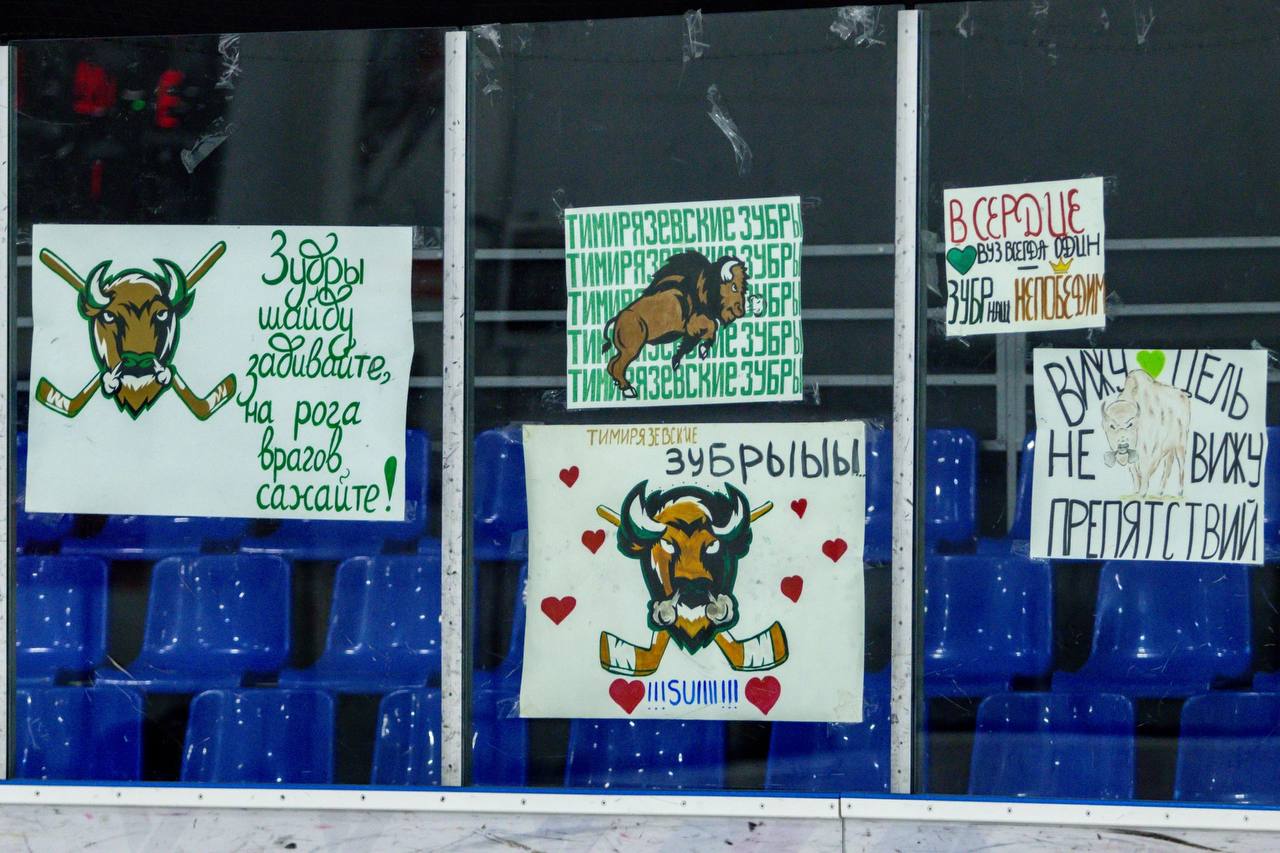 Зубры
шайбу
забивайте,
на рога
врагов
сажайте!
ТИМИРЯЗЕВСКИЕ ЗУБРЫ
ТИМИРЯЗЕВСКИЕ ЗУБРЫ
ТИМИ ЗУБРЫ
ТИМИ УБРЫ
ТИМИРЯЗЕВСКИЕ ЗУБРЫ
ТИМИРЯЗЕВСКИЕ
ЗУБРЫЫЫ...
!!!SUIIII!!!
В СЕРДЦЕ
ВУЗ ВСЕГДА ОДИН
ЗУБР НАШ НЕПОБЕДИМ
ВИЖУ ЦЕЛЬ
НЕ ВИЖУ
ПРЕПЯТСТВИЙ